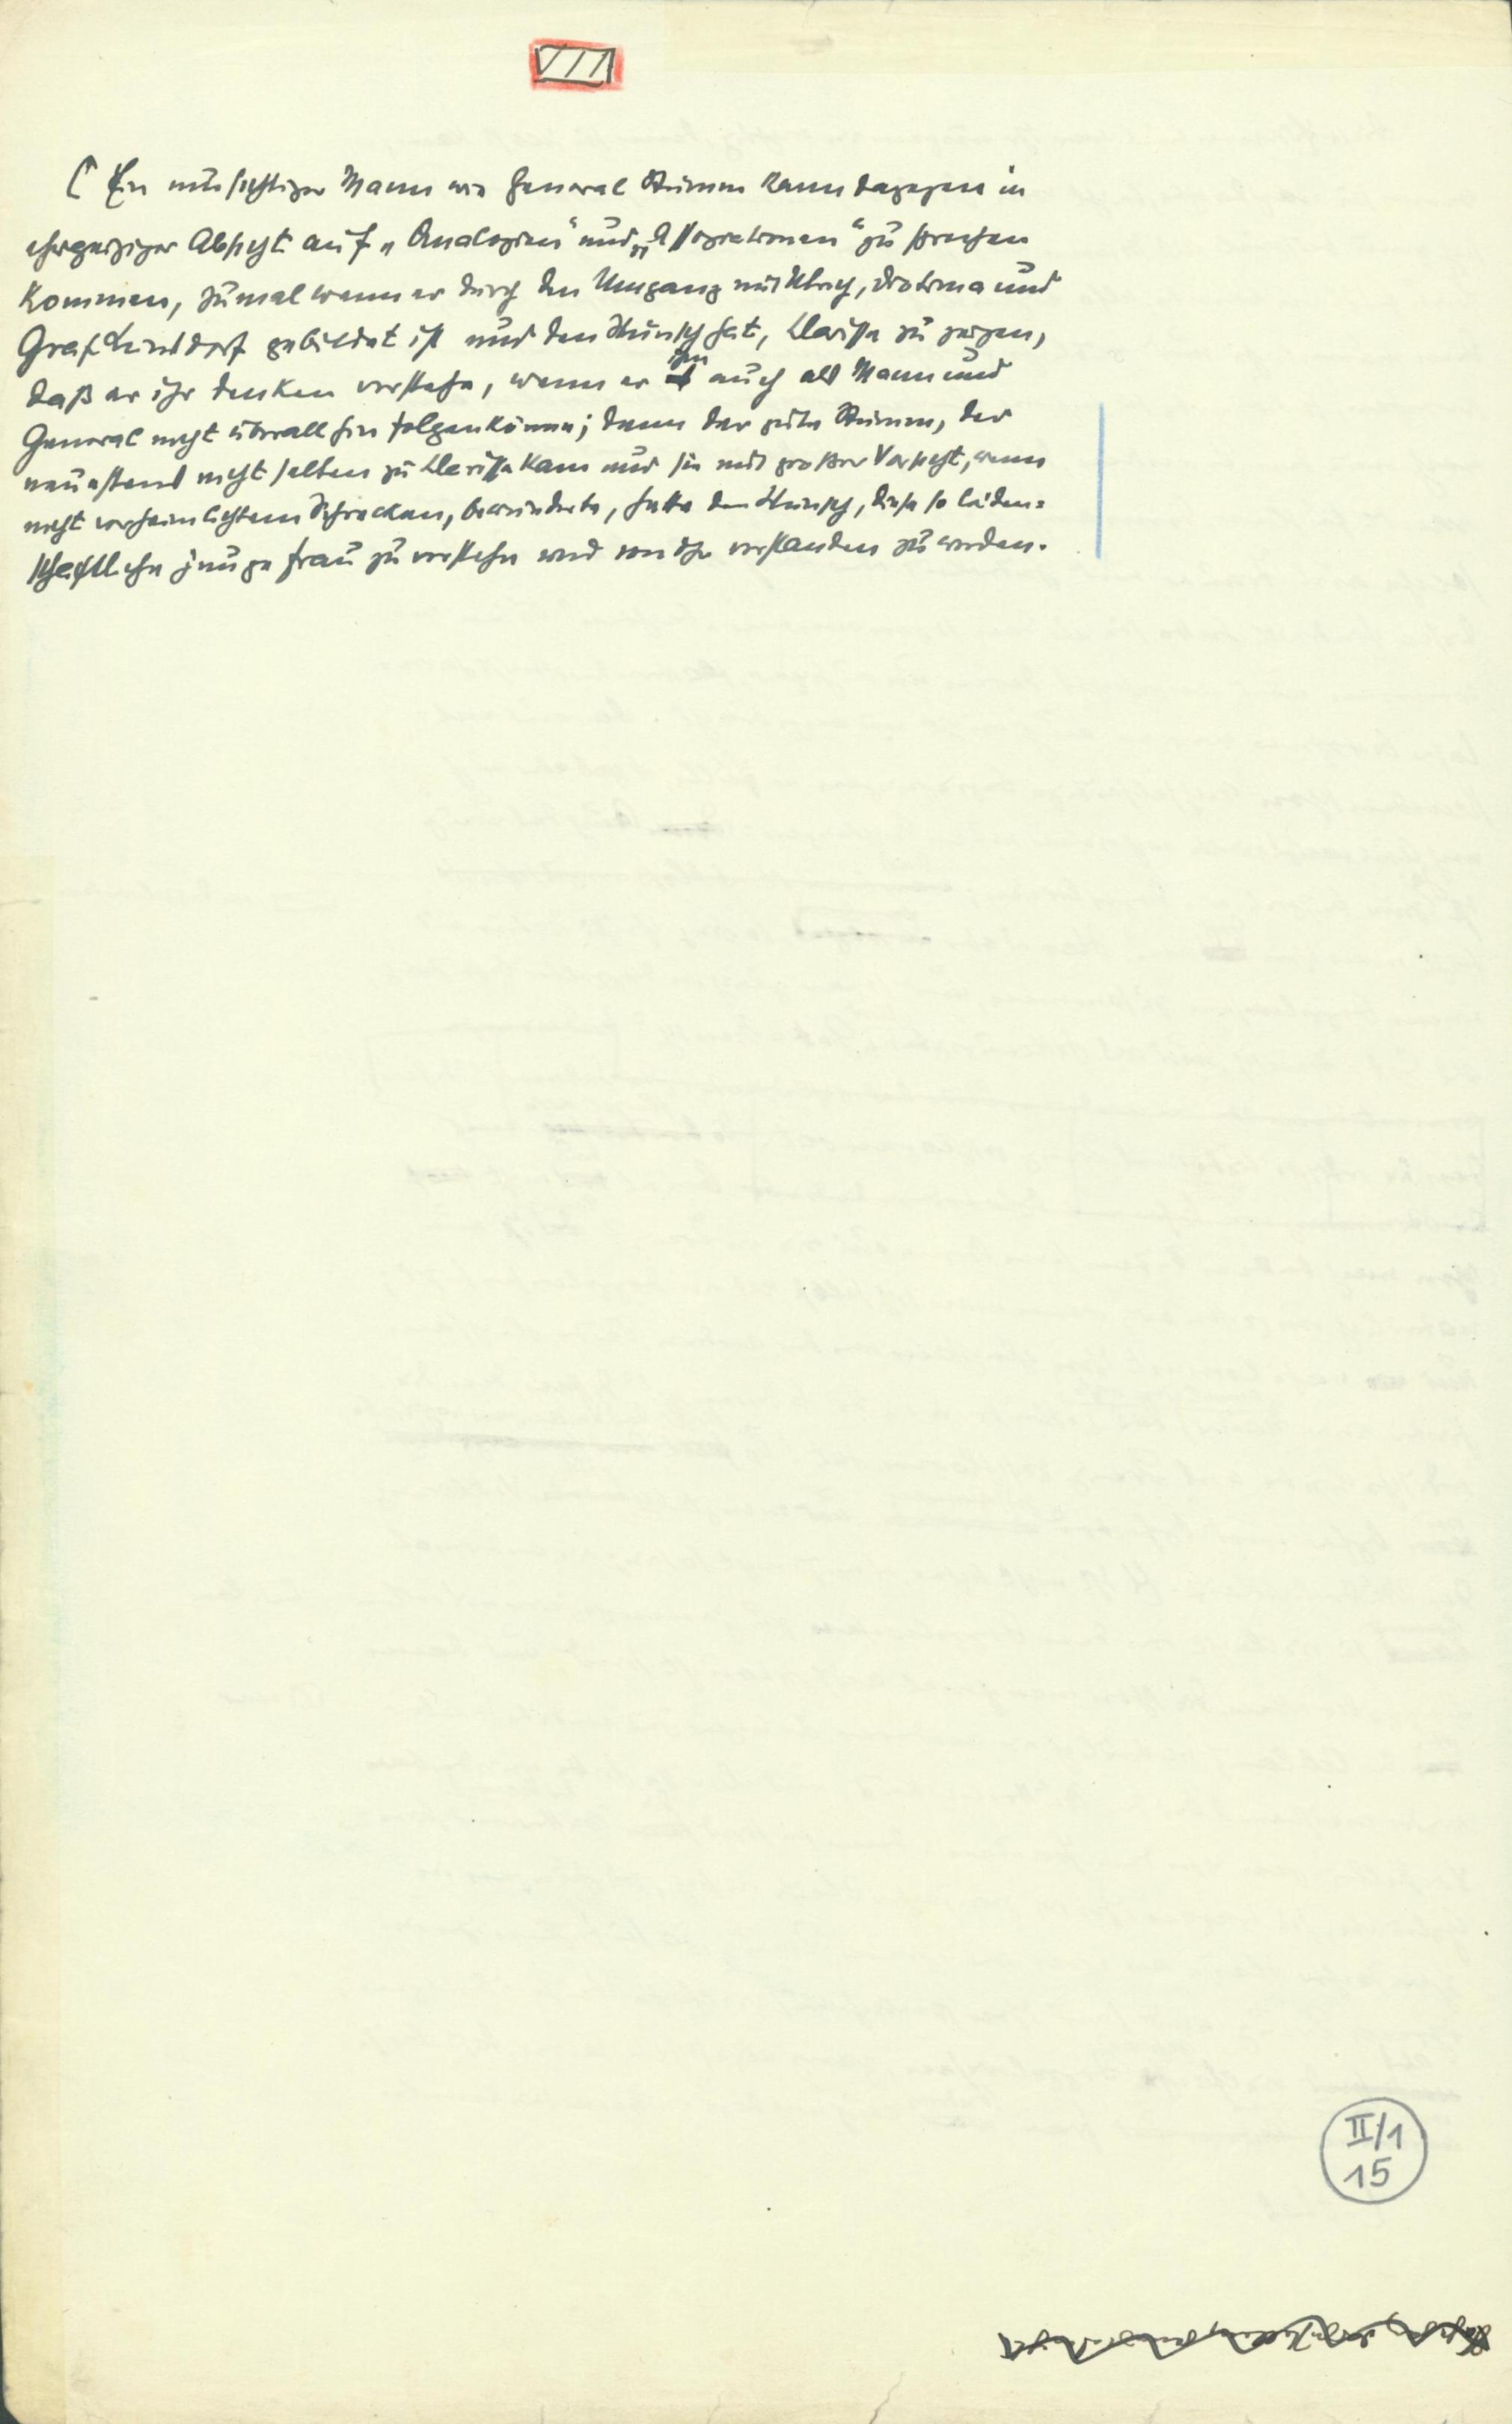 VII
[ Ein umsichtiger Mann wie General Stumm kann dagegen in
ehrgeiziger Absicht auf „Analogien“ und „Assoziationen“ zu sprechen
kommen, zumal wenn er durch den Umgang mit Ulrich, Diotima und
Graf Leinsdorf gebildet ist und den Wunsch hat, Clarisse zu zeigen,
daß er ihr Denken verstehe, wenn er ihm auch als Mann und
General nicht überall hin folgen könne; denn der gute Stumm, der
neuestens nicht selten zu Clarisse kam und sie mit großer Vorsicht, wenn
nicht verheimlichtem Schrecken, bewunderte, hatte den Wunsch, diese so leiden=
schaftliche junge Frau zu verstehn und von ihr verstanden zu werden.
II/1
15